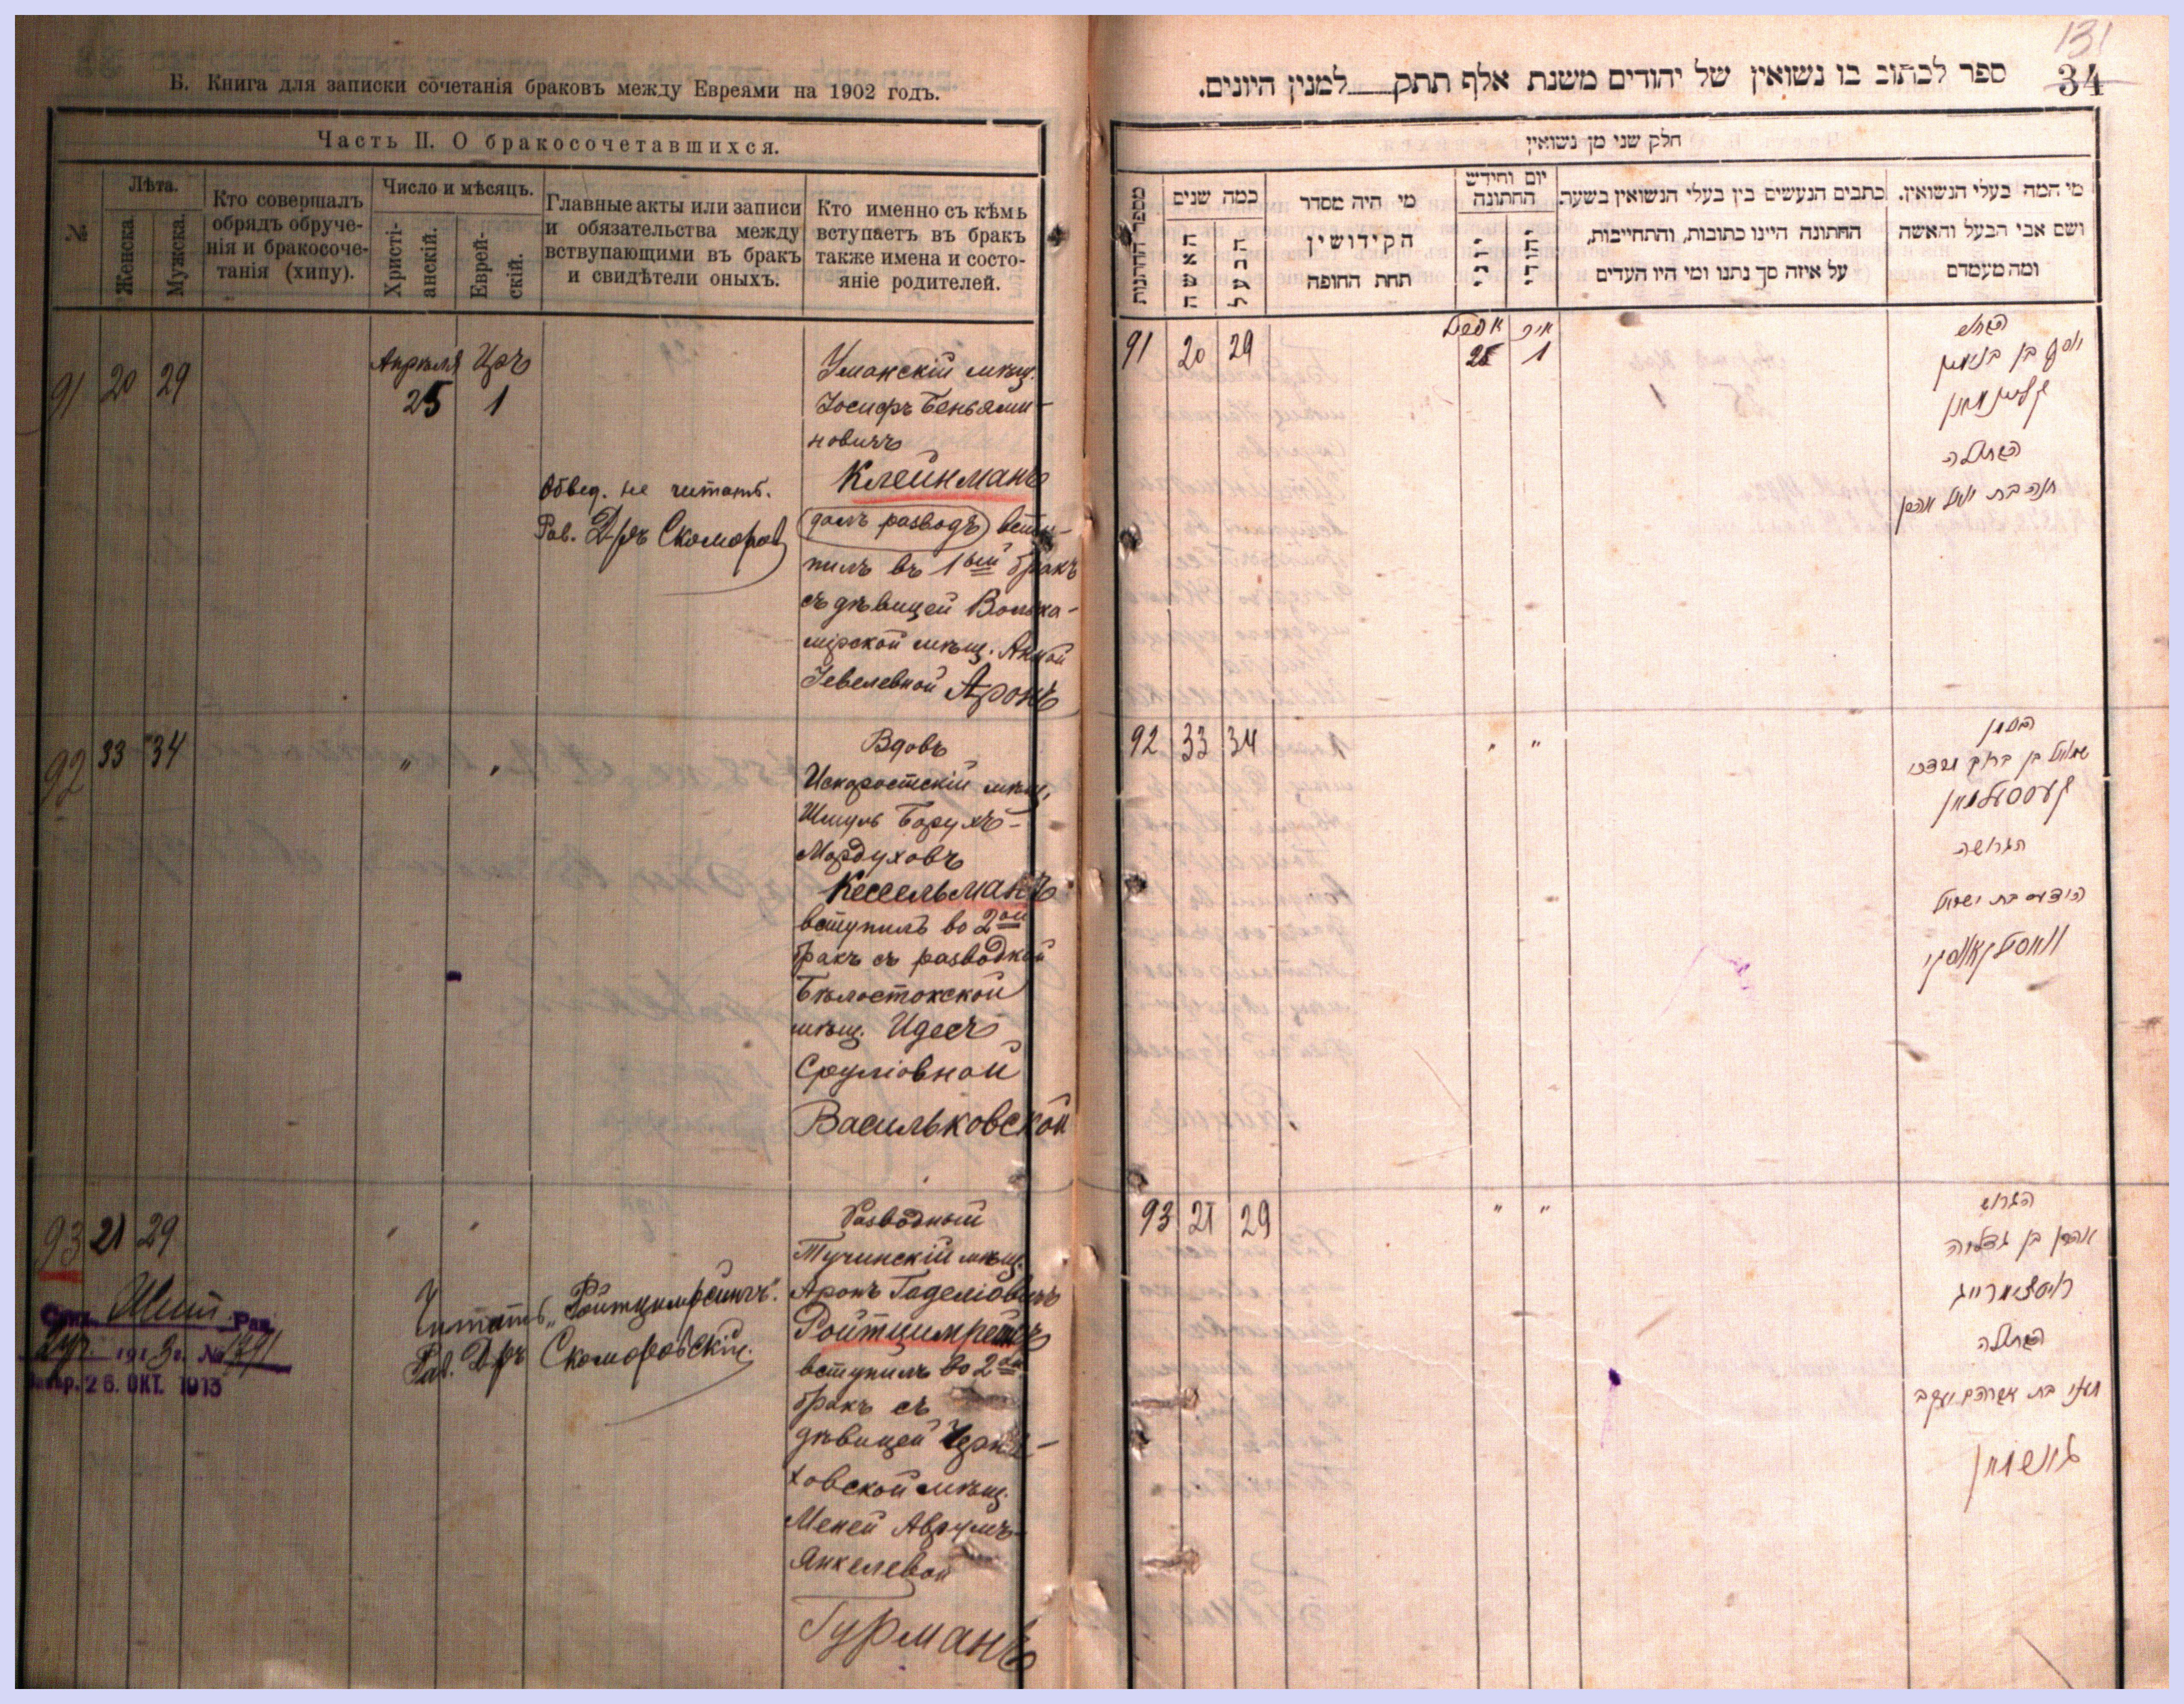 Б. Книга для записки сочетанія браковъ между Евреями на 1902 годъ.
Часть II. О бракосочетавшихся.
№
Лѣта.
Женска
Мужска.
Кто совершалъ
обрядъ обруче-
нія и бракосоче-
танія (хипу).
Число и мѣсяцъ.
Христі-
анскій.
Еврей-
скій.
Главные акты или записи
и обязательства между
вступающими въ бракъ
и свидѣтели оныхъ.
Кто именно съ кѣмъ
вступаетъ въ бракъ
также имена и состо-
яніе родителей.
91 20 29
Апрѣля Иръ
25 1
Обвед. не читать.
Рав. Д-ръ Скоморов
Уманскій мѣщ.
Іосифъ Беньями-
новичъ
Клейнманъ
(далъ разводъ) всту-
пилъ въ 1ый бракъ
съ дѣвицей Волько-
мірской мѣщ. Анной
Іевелевной Аронъ
92 33 34 " "
Вдовъ
Искоростскій мѣщ.
Шмуль Борухъ-
Мордуховъ
Кесельманъ
вступилъ во 2ой
бракъ съ разводкой
Бѣлостокской
мѣщ. Идесъ
Сруліовной
Васильковской
93 21 29
Читать „Ройтцимрейнгъ".
Рав. Д-ръ Скоморовскій.
191 г. № 1791
26. ОКТ. 1913
Разводный
Тучинскій мѣщ.
Аронъ Гаделіовичъ
Ройтцимрейнгъ
вступилъ во 2ой
бракъ съ
дѣвицей Черня-
ховской мѣщ.
Меней Аврумъ-
Янкелевой
Гурманъ
131
34
ספר לכתוב בו נשואין של יהודים משנת אלף תתק למנין היונים.
חלק שני מן נשואין
מספר החתונות
כמה שנים
האשה
הבעל
מי היה מסדר
הקידושין
תחת החופה
יום וחידש
החתונה
יוני
יהודי
כתבים הנעשים בין בעלי הנשואין בשעת
החתונה היינו כתובות, והתחייבות,
על איזה סך נתנו ומי היו העדים
מי המה בעלי הנשואין.
ושם אבי הבעל והאשה
ומה מעמדם
91 20 29
אפריל אייר
25 1
יוסף בן בנימין
קליינמאן
הבתולה
92 33 34 " "
האלמן
שמואל בן ברוך מרדכי
קעססעלמאן
הגרושה
בת ישראל
וואסילקאווסקי
93 21 29 " "
הגרוש
אהרן בן גדליה
הבתולה
מעני בת אברהם יעקב